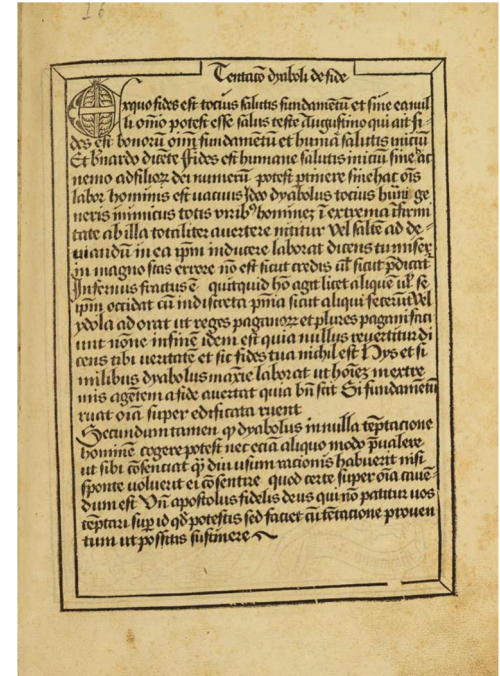 16
Temtatio dyaboli de fide
Exquo fides est tocius salutis fundamētū et sine ea nul
li oīno potest esse salus teste Augustino qui ait fi
des est bonorū oīm fundamētū et humāe salutis iniciū
Et bnardo dicēte Fides est humane salutis iniciū sine hac
nemo ad filioꝝ dei numerū potest ptinere sine hac oīs
labor hominis est vacuus Ideo dyabolus tocius hūni ge
neris inimicus totis viribꝰ hominez ī extrema īfirmi
tate ab illa totaliter auertere nititur vel saltē ad de-
uiandū in ea ipm inducere laborat dicens tu miser
in magno stas errore nō est sicut credis ul' sicut pdicat
Infernus fractus ē quitquid hō agit licet aliquē ul' se
ipm occidat cū indiscreta pnīa sicut aliqui fecerūt vel
ydola ad orat ut reges paganoꝝ et plures pagani faci
unt nōne in fine idem est quia nullus reuertitur di
cens tibi ueritatē et sic fides tua nichil est Hys et si
milibus dyabolus maxīe laborat ut hoīez in extre
mis agētem a fide auertat quia bn̄ scit Si fundamētū
ruat oīa super edificata ruent
Secundum tamen qp dyabolus in nulla tēptacione
hominē cogere potest nec eciā aliquo modo pualere
ut sibi cōsenciat qp diu usum racionis habuerit nisi
sponte voluerit ei cōsentire quod certe super oīa cauē-
dum est Vn̄ apostolus fidelis deus qui nō patitur uos
tēptari supr id qd potestis sed faciet cū tētacione prouen
tum ut possitis sustinere